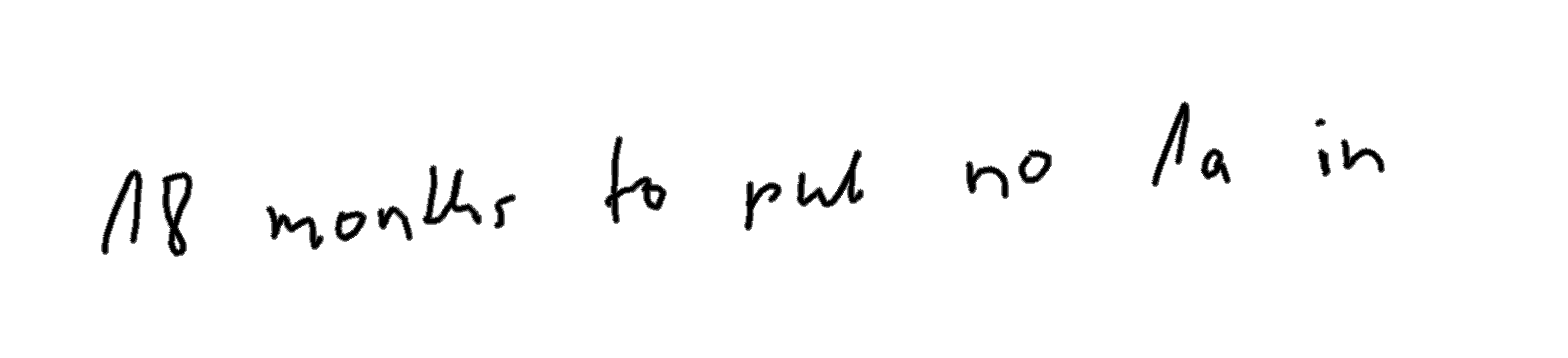 18 months to put no 1a in